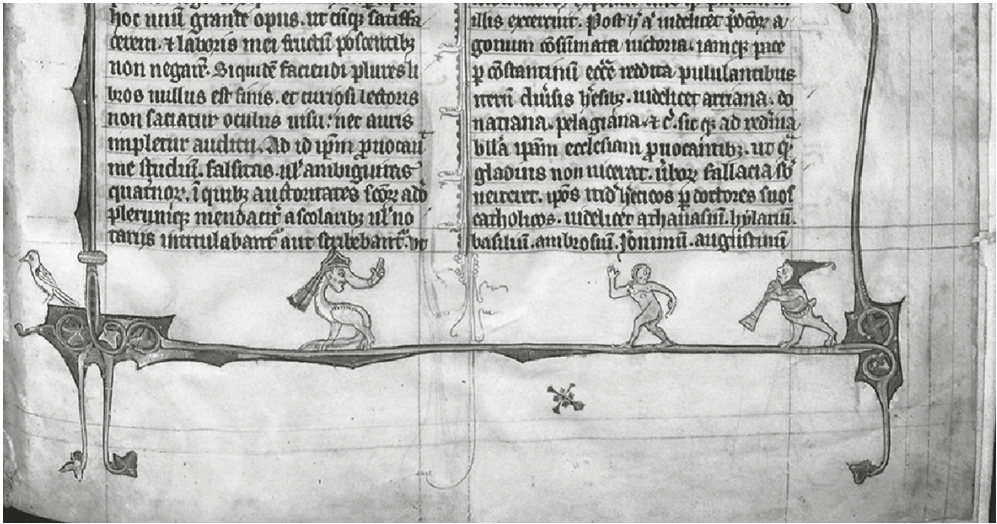 hoc unū grande opus. ut cūq; satisfa
cerem. & laboris mei fructū poscentib;
non negarē. Siquidē faciendi plures li
bros nullus est finis. et curiosi lectoris
non satiatur oculus uisu: nec auris
impletur auditu. Ad id ip̄m ꝓuocau
me studiū. falsitas. ul' ambiguitas
quat'nor. ī quib; auctoritates scōr̄ adō
plerumq; mendacit' a scolarib; ul' no
tariis intitulabant' aut scribebant'. ut
illis exercuit. Post h'
gonum cōsumata uictoria. iamq; pace
p cōstantinū eccē reddita pululantibus
iterū diu'sis h'esib;. uidelicet arriana. do
natiana. pelagiana. & c'. sicq; ad
bilē ipam ecclesiam ꝓuocantib;. ut q
gladius non uicerat. u'bor fallacia sb
uerteret. ip̄os h'eticos p doctores suos
catholicos. uidelicet athanasiū. hylariū.
basiliū. ambrosiū. Jonimū. augustinū